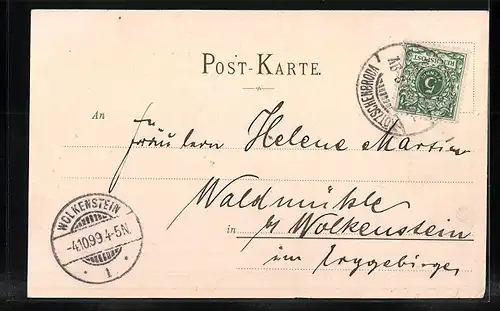 POST-KARTE.
KÖTZSCHENBRODA
REICHSPOST
5
An
Fräulein Helene Martin
Waldmühle
in b/ Wolkenstein
im Erzgebirge
WOLKENSTEIN
-4.10.99.4-5N.
* 1 *